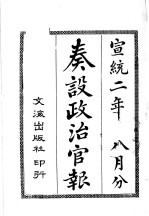 宣統二年 八月分
奏設政治官報
文海出版社印行